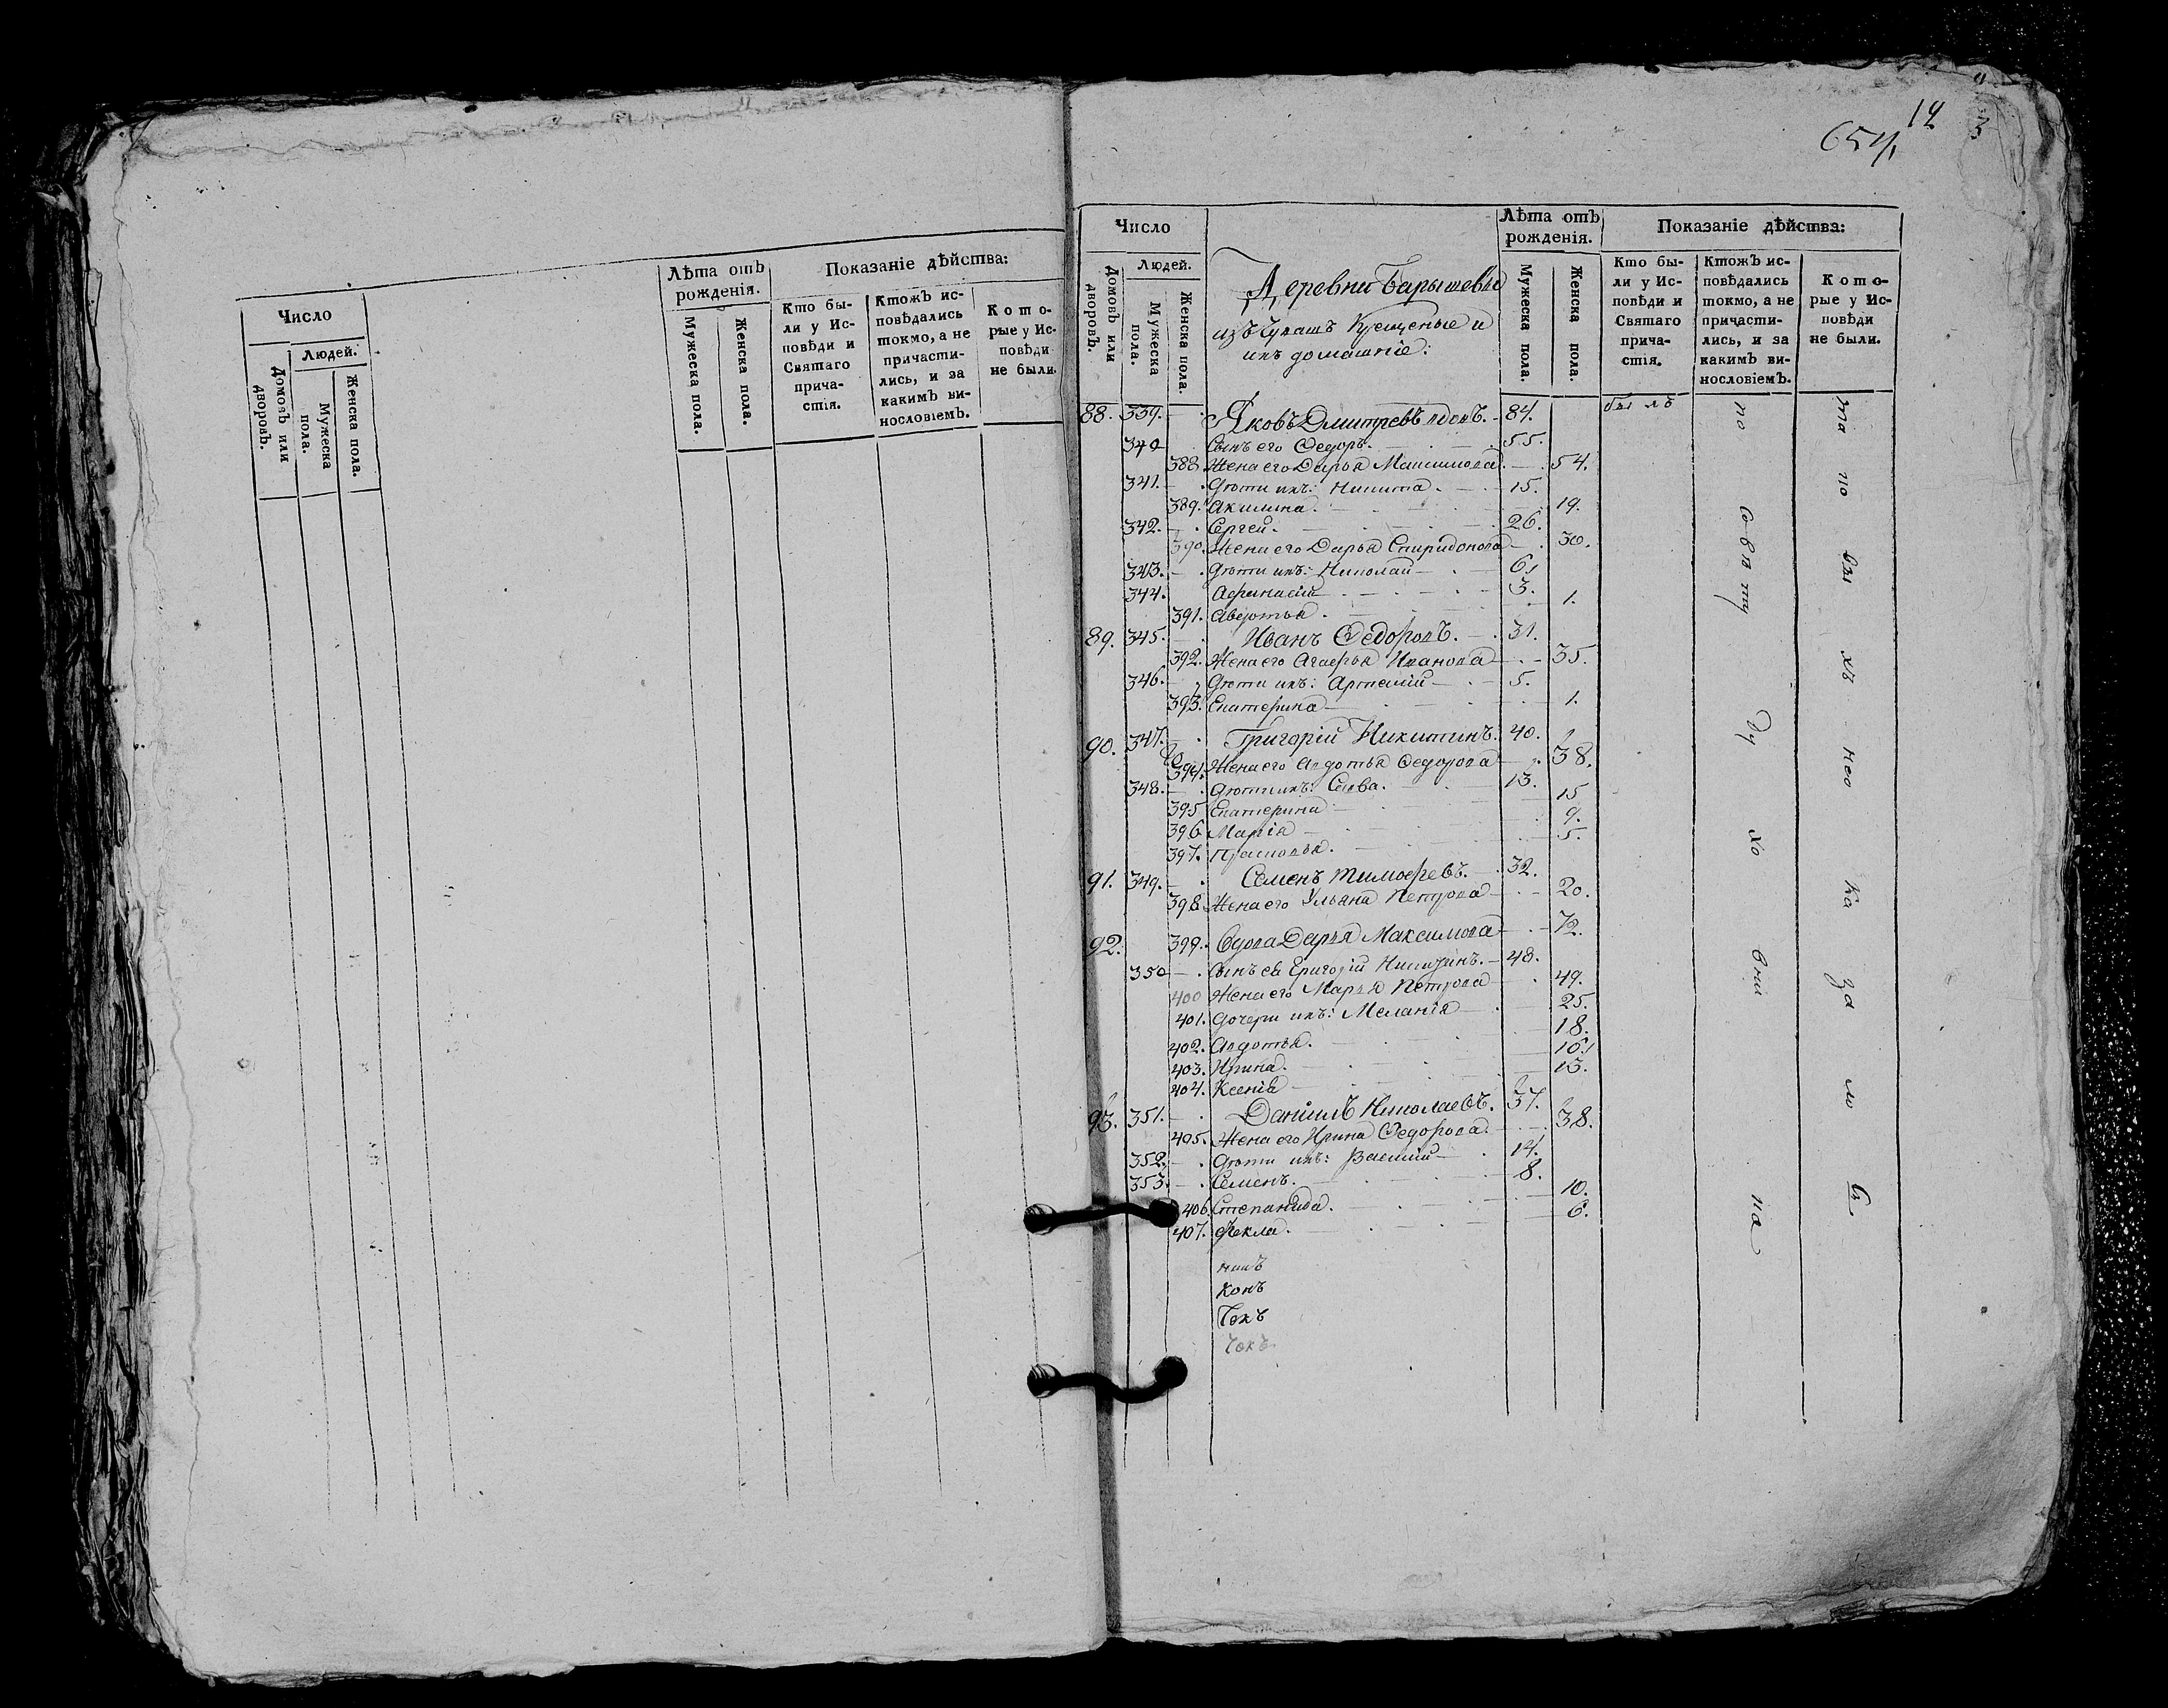 12
654
3
Число
Людей.
Домовъ или дворовъ.
Мужеска пола.
Женска пола.
Лѣта отъ рожденія.
Мужеска пола.
Женска пола.
Показаніе дѣйства:
Кто были у Исповѣди и Святаго причастія.
Ктожъ исповѣдались токмо, а не причастились, и за какимъ винословіемъ.
Которые у Исповѣди не были.
Число
Людей.
Домовъ или дворовъ.
Мужеска пола.
Женска пола.
Деревни Барышевы
изъ Чувашъ Крещеные и
ихъ домашніе:
Лѣта отъ рожденія.
Мужеска пола.
Женска пола.
Показаніе дѣйства:
Кто были у Исповѣди и Святаго причастія.
Ктожъ исповѣдались токмо, а не причастились, и за какимъ винословіемъ.
Которые у Исповѣди не были.
88. 339. Яковъ Дмитревъ вдовъ. 84. былъ
340 Сынъ его Ѳедоръ. 55.
388. Жена его Дарья Максимова 54.
341. Дѣти ихъ: Никита. 15.
389. Акилина. 19.
342. Сергей. 26.
390. Жена его Дарья Спиридонова 30.
343. Дѣти ихъ: Николай 6.
344. Аѳанасій 3.
391. Авдотья. 1.
89. 345. Иванъ Ѳедоровъ. 31.
392. Жена его Агаѳья Иванова 35.
346. Дѣти ихъ: Артемій 5.
393. Екатерина 1.
90. 347. Григорій Никитинъ. 40.
394. Жена его Авдотья Ѳедорова 38.
348. Дѣти ихъ: Савва. 13.
395 Екатерина 15
396 Марія 9.
397. Прасковья. 5.
91. 349. Семенъ Тимоѳеевъ. 32.
398 Жена его Ульяна Петрова 20.
92. 399. Вдова Дарья Максимова 72.
350 Сынъ ея Григорій Никитинъ. 48.
400 Жена его Марья Петрова 49.
401. Дочери ихъ: Меланія 25.
402. Авдотья. 18.
403. Ирина. 16.
404. Ксенія 13.
93. 351. Даніилъ Николаевъ. 37.
405. Жена его Ирина Ѳедорова. 38.
352. Дѣти ихъ: Василій 14.
353. Семенъ. 8.
406. Степанида. 10.
407. Ѳекла. 6.
по совѣту духовника
никъ
конъ